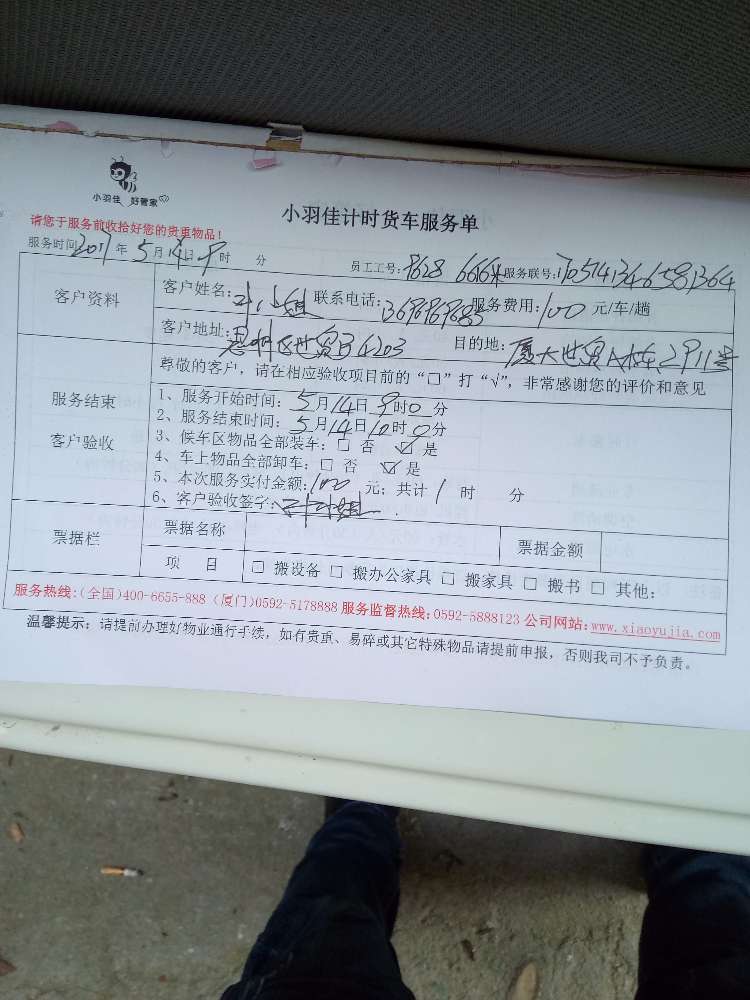 小羽佳 好管家
小羽佳计时货车服务单
请您于服务前收拾好您的贵重物品！
服务时间2017年5月14日9时 分 员工工号:8628 666米 服务联号:1705141346581364
客户资料
客户姓名: 小姐 联系电话: 服务费用:100元/车/趟
客户地址: 世贸B4203 目的地:厦大世贸
尊敬的客户，请在相应验收项目前的“□”打“√”，非常感谢您的评价和意见
服务结束
客户验收
1、服务开始时间：5月14日9时0分
2、服务结束时间：5月14日10时0分
3、候车区物品全部装车：□ 否 ☑ 是
4、车上物品全部卸车：□ 否 ☑ 是
5、本次服务实付金额:100元；共计1时 分
6、客户验收签字:
票据栏
票据名称 票据金额
项 目 □ 搬设备 □ 搬办公家具 □ 搬家具 □ 搬书 □ 其他：
服务热线:(全国)400-6655-888 (厦门)0592-5178888 服务监督热线:0592-5888123 公司网站:www.xiaoyujia.com
温馨提示：请提前办理好物业通行手续，如有贵重、易碎或其它特殊物品请提前申报，否则我司不予负责。